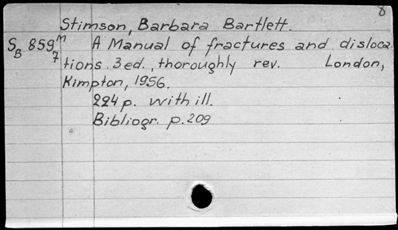 8
Stimson, Barbara Bartlett.
SB 859 M/7 A Manual of fractures and disloca
tions. 3ed., thoroughly rev. London,
Kimpton, 1956.
224 p. with ill.
Bibliogr. p. 209